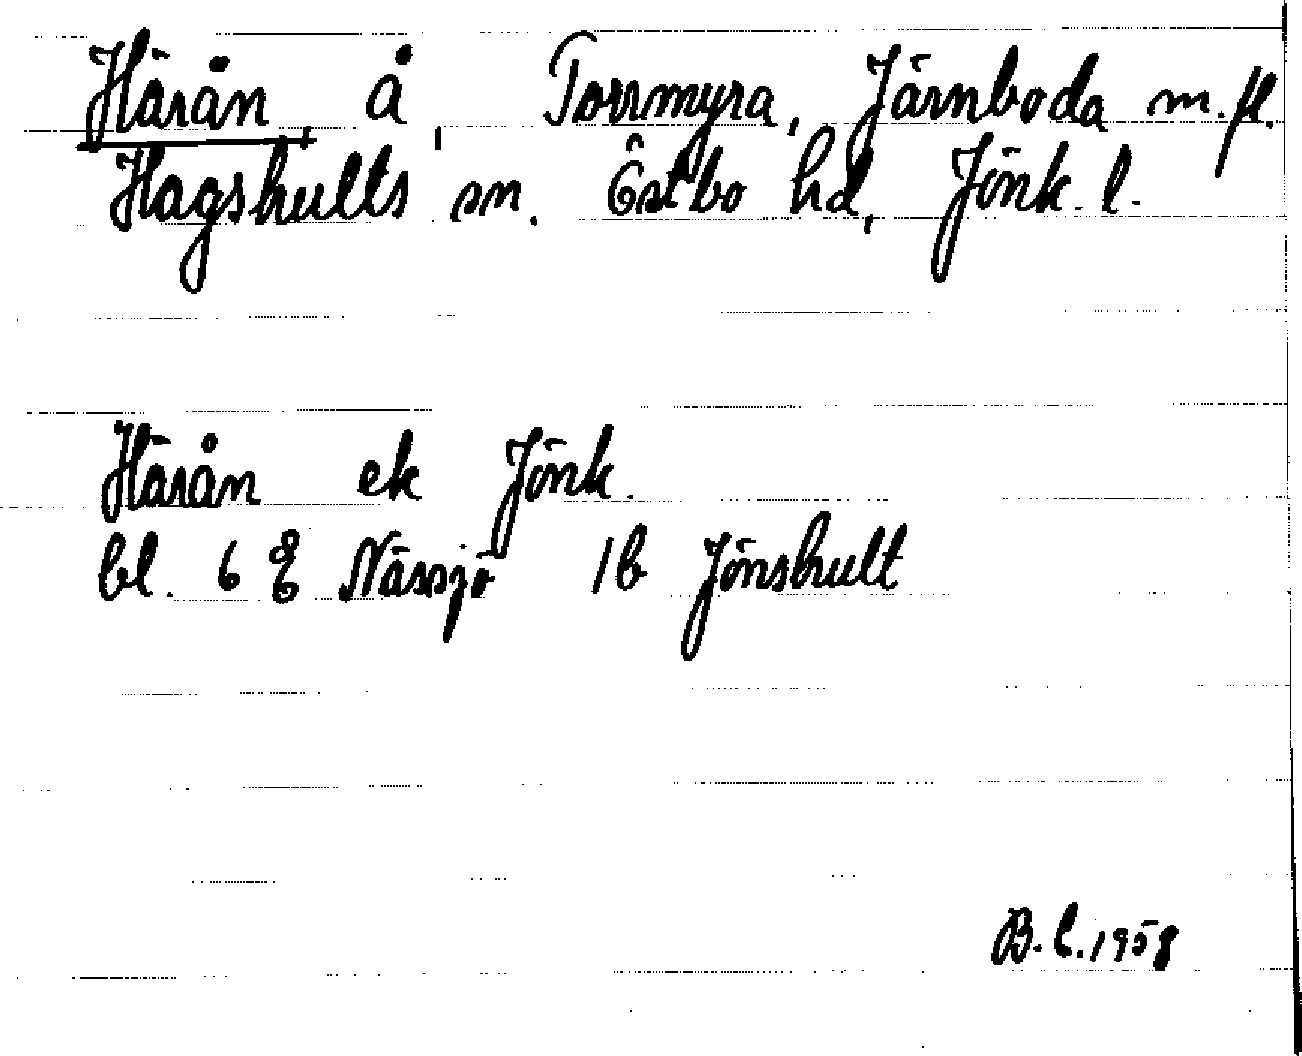 Härån, å, Torrmyra, Järnboda m.fl.
Hagshults sn. Östbo hd, Jönk. l.
Härån ek Jönk.
bl. 6 E Nässjö 1b Jönshult
B.L. 1958